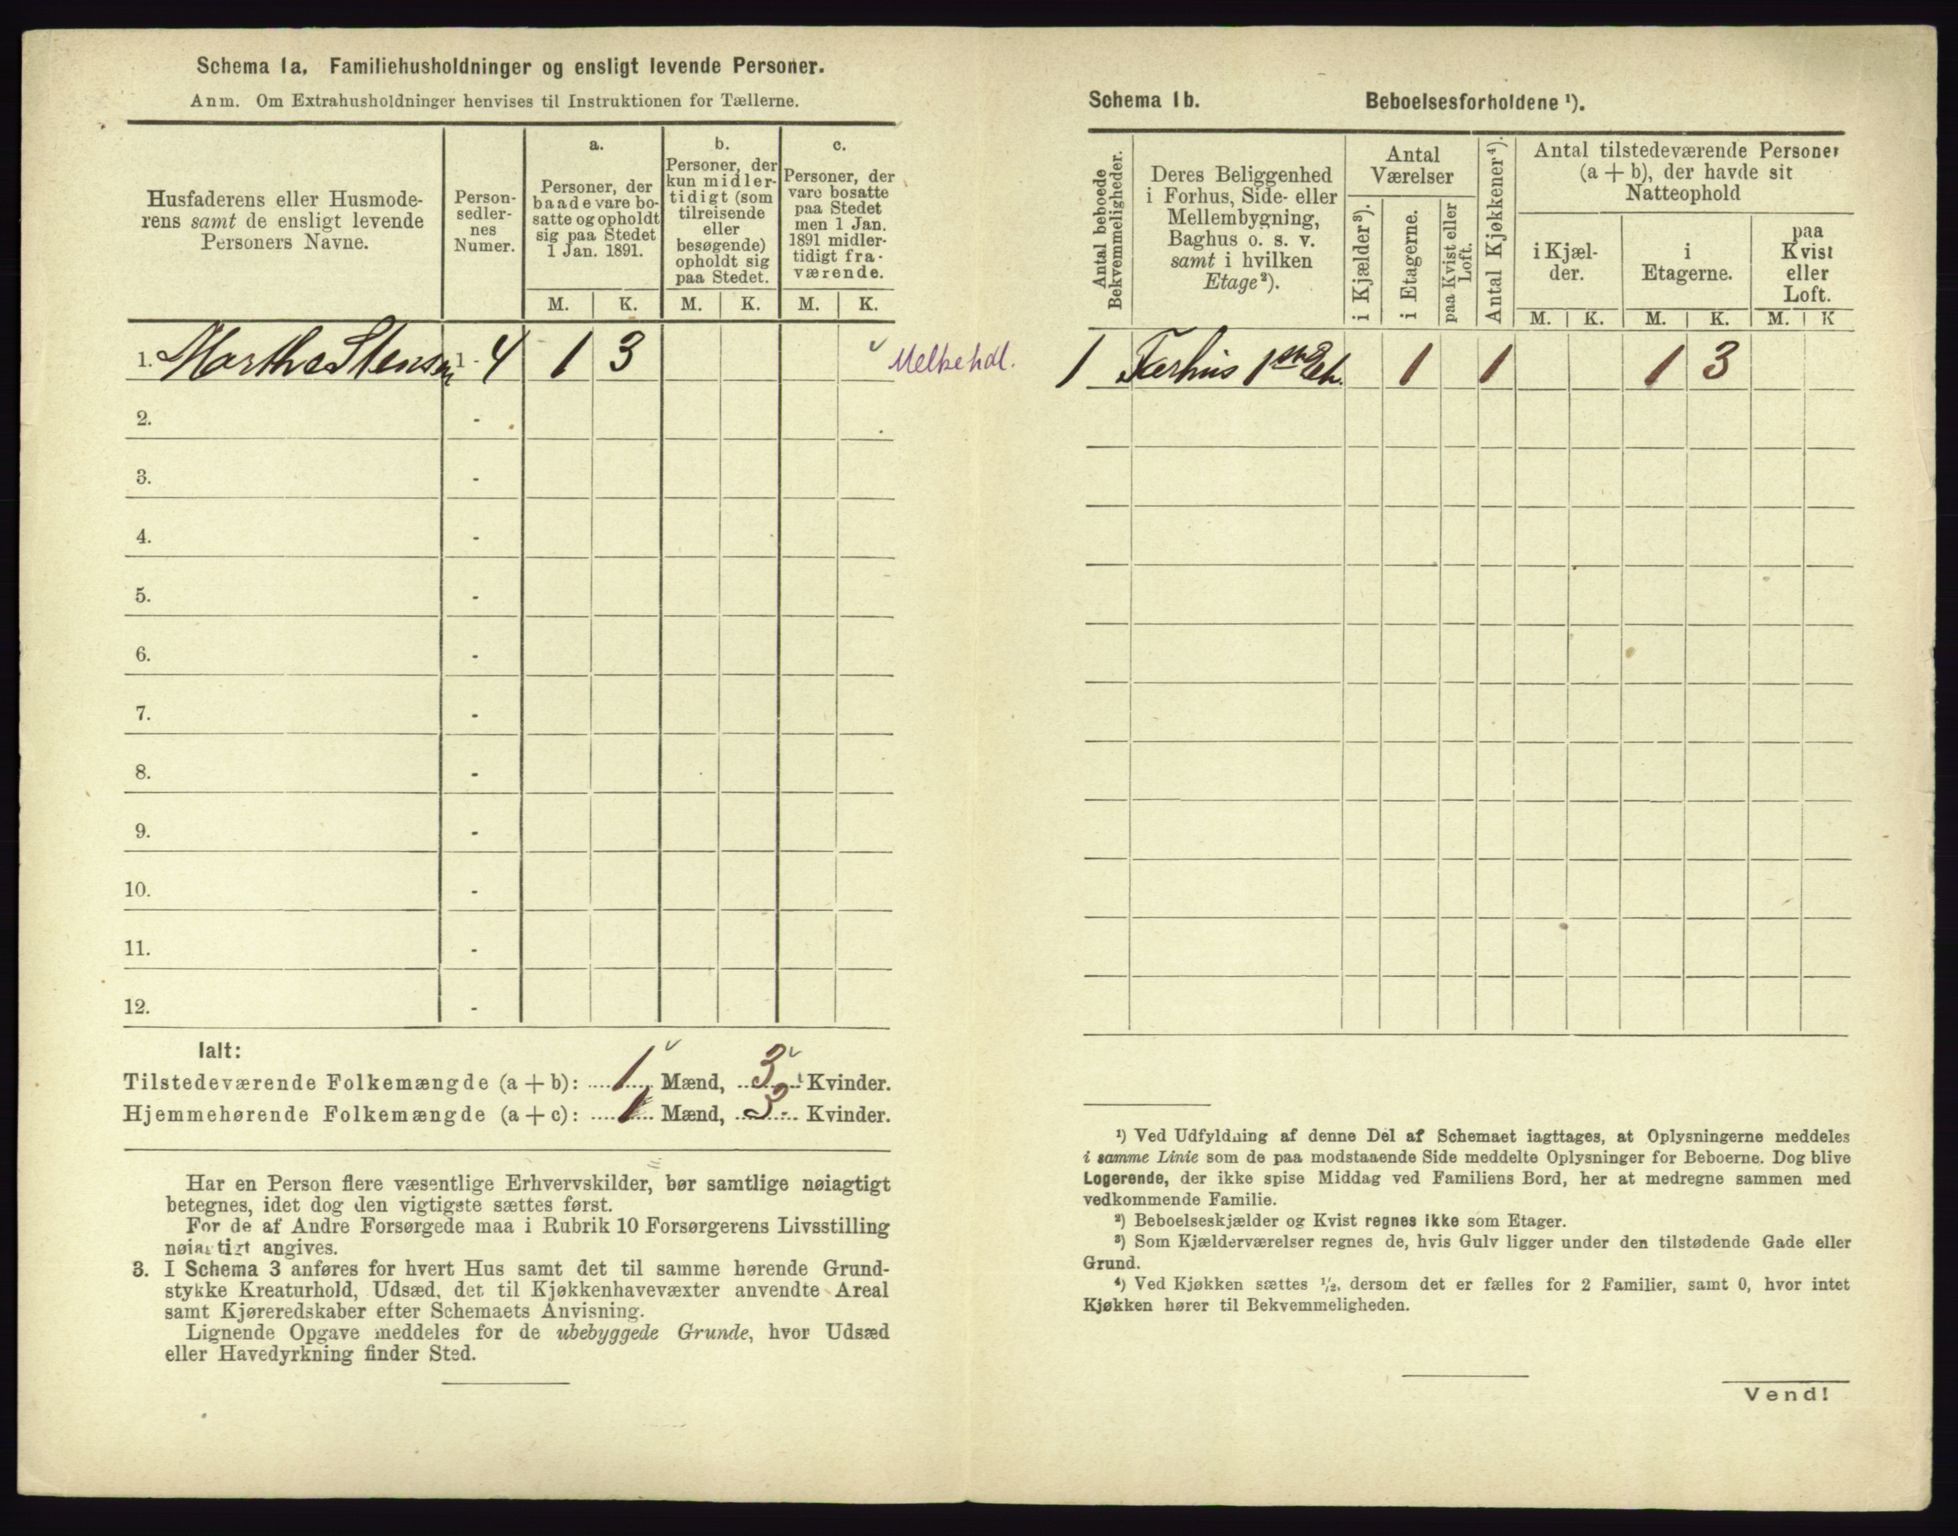 Schema 1a. Familiehusholdninger og ensligt levende Personer.
Anm. Om Extrahusholdninger henvises til Instruktionen for Tællerne.
Husfaderens eller Husmode-
rens samt de ensligt levende
Personers Navne.
Person-
sedler-
nes
Numer.
a.
Personer, der
baade vare bo-
satte og opholdt
sig paa Stedet
1 Jan. 1891.
b.
Personer, der
kun midler-
tidigt (som
tilreisende
eller
besøgende)
opholdt sig
paa Stedet.
c.
Personer, der
vare bosatte
paa Stedet
men 1 Jan.
1891 midler-
tidigt fra-
værende.
M. K. M. K. M. K.
1. Marthe Stensen 1 - 4 1 3 Melkehdl.
2. -
3. -
4. -
5. -
6. -
7. -
8. -
9. -
10. -
11. -
12. -
Ialt:
Tilstedeværende Folkemængde (a + b): 1 Mænd, 3 Kvinder.
Hjemmehørende Folkemængde (a + c): 1 Mænd, 3 Kvinder.
Har en Person flere væsentlige Erhvervskilder, bør samtlige nøiagtigt
betegnes, idet dog den vigtigste sættes først.
For de af Andre Forsørgede maa i Rubrik 10 Forsørgerens Livsstilling
nøiagtigt angives.
3. I Schema 3 anføres for hvert Hus samt det til samme hørende Grund-
stykke Kreaturhold, Udsæd, det til Kjøkkenhavevæxter anvendte Areal
samt Kjøreredskaber efter Schemaets Anvisning.
Lignende Opgave meddeles for de ubebyggede Grunde, hvor Udsæd
eller Havedyrkning finder Sted.
Schema 1b. Beboelsesforholdene ¹).
Antal beboede
Bekvemmeligheder.
Deres Beliggenhed
i Forhus, Side- eller
Mellembygning,
Baghus o. s. v.
samt i hvilken
Etage²).
Antal
Værelser
i Kjælder³).
i Etagerne.
paa Kvist eller
Loft.
Antal Kjøkkener⁴).
Antal tilstedeværende Personer
(a + b), der havde sit
Natteophold
i Kjæl-
der.
i
Etagerne.
paa
Kvist
eller
Loft.
M. K. M. K. M. K
1 Forhus 1ste Et. 1 1 1 3
¹) Ved Udfyldning af denne Del af Schemaet iagttages, at Oplysningerne meddeles
i samme Linie som de paa modstaaende Side meddelte Oplysninger for Beboerne. Dog blive
Logerende, der ikke spise Middag ved Familiens Bord, her at medregne sammen med
vedkommende Familie.
²) Beboelseskjælder og Kvist regnes ikke som Etager.
³) Som Kjælderværelser regnes de, hvis Gulv ligger under den tilstødende Gade eller
Grund.
⁴) Ved Kjøkken sættes ½, dersom det er fælles for 2 Familier, samt 0, hvor intet
Kjøkken hører til Bekvemmeligheden.
Vend!